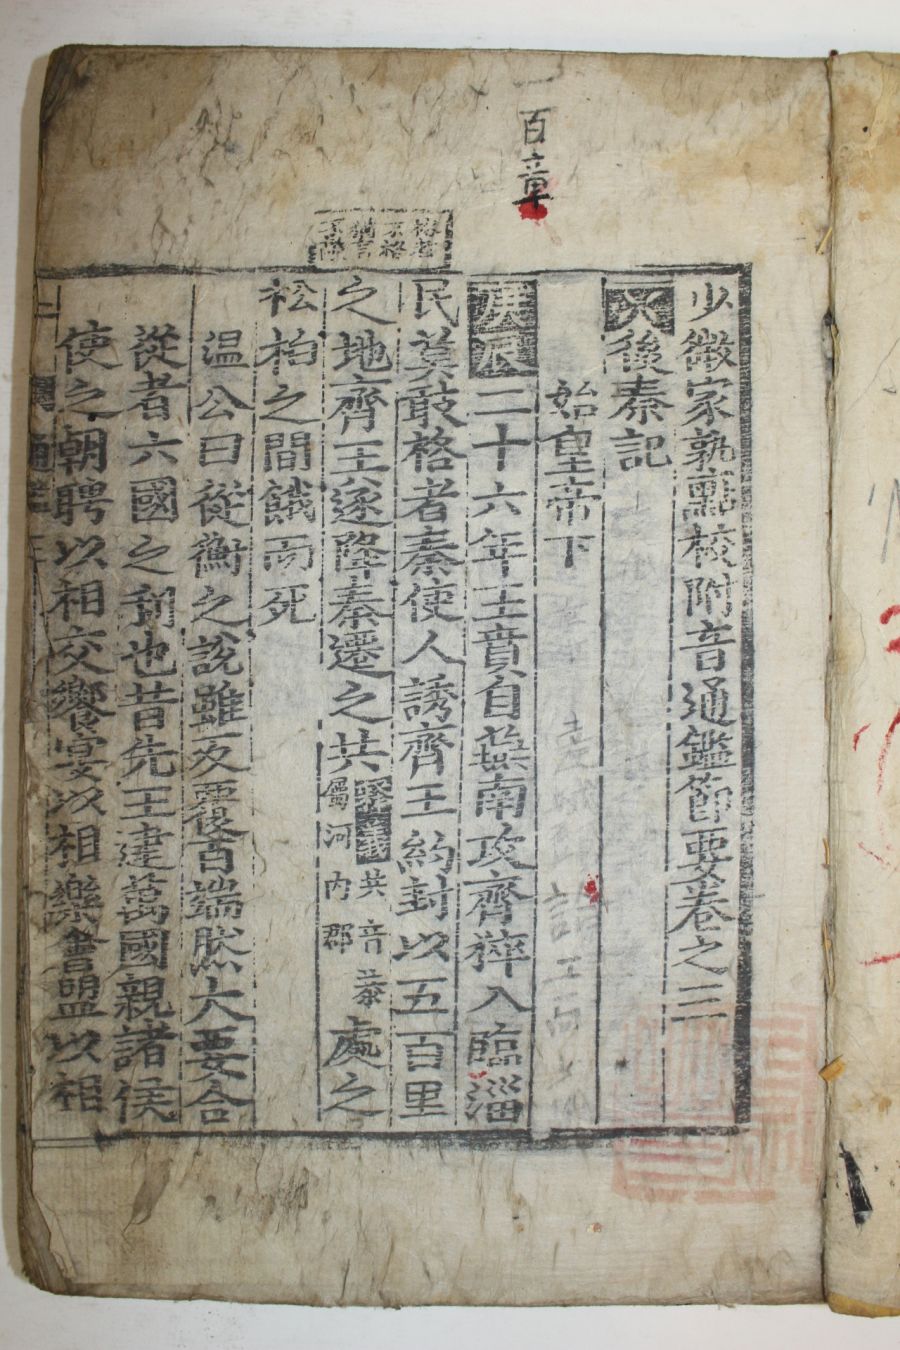 一百章
少微家塾點校附音通鑑節要卷之三
後秦記
始皇帝下
庚辰二十六年王賁自燕南攻齊猝入臨淄
民莫敢格者秦使人誘齊王約封以五百里
之地齊王遂降秦遷之共
共音恭
屬河內郡
處之
松柏之間餓而死
温公曰從衡之說雖反覆百端然大要合
從者六國之利也昔先王建萬國親諸侯
使之朝聘以相交饗宴以相樂會盟以相